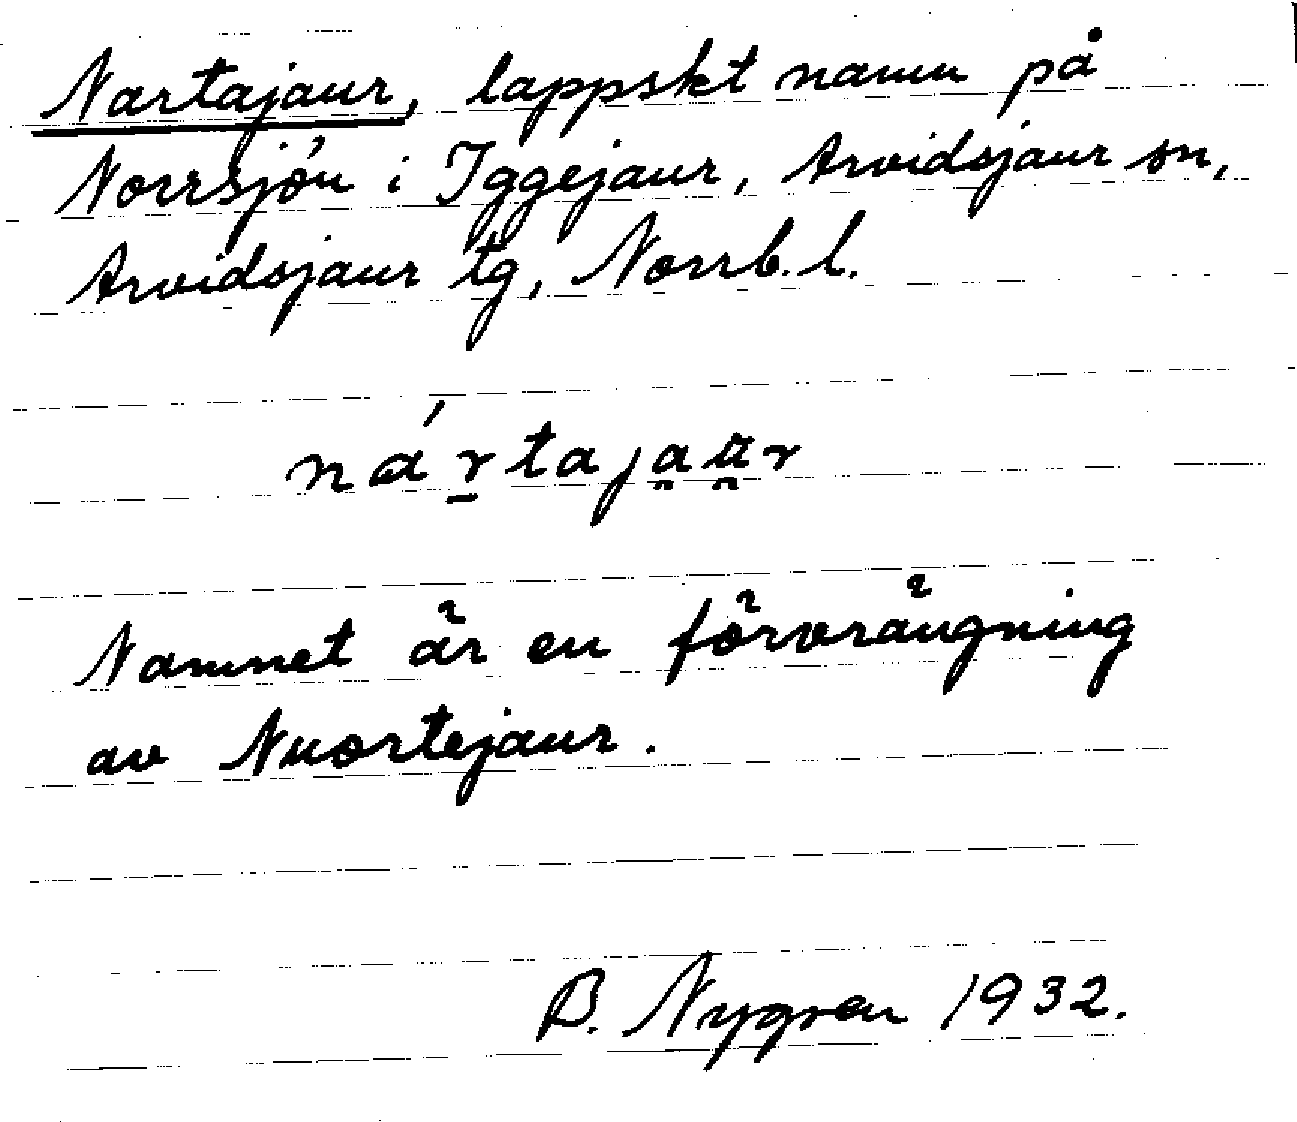 Nartajaur, lappskt namn på
Norrsjön i Iggejaur, Arvidsjaur sn,
Arvidsjaur tg, Norrb. l.
ná́r̲taja̯a̯r
Namnet är en förvrängning
av Nuortejaur.
B. Nygren 1932.